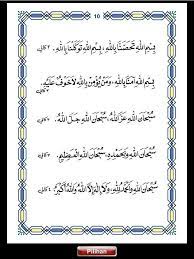 10
بِسْمِ اللهِ تَحَصَّنَّا بِاللهِ، بِسْمِ اللهِ تَوَكَّلْنَا بِاللهِ. ٣ كالي
بِسْمِ اللهِ آمَنَّا بِاللهِ، وَمَنْ يُؤْمِنْ بِاللهِ لَاخَوْفٌ عَلَيْهِ. ٣ كالي
سُبْحَانَ اللهِ عَزَّ اللهُ، سُبْحَانَ اللهِ جَلَّ اللهُ. ٣ كالي
سُبْحَانَ اللهِ وَبِحَمْدِهِ، سُبْحَانَ اللهِ الْعَظِيْمِ. ٣ كالي
سُبْحَانَ اللهِ وَالْحَمْدُ لِلّٰهِ، وَلَا إِلٰهَ إِلَّا اللهُ وَاللهُ أَكْبَرُ. ٤ كالي
Pilihan